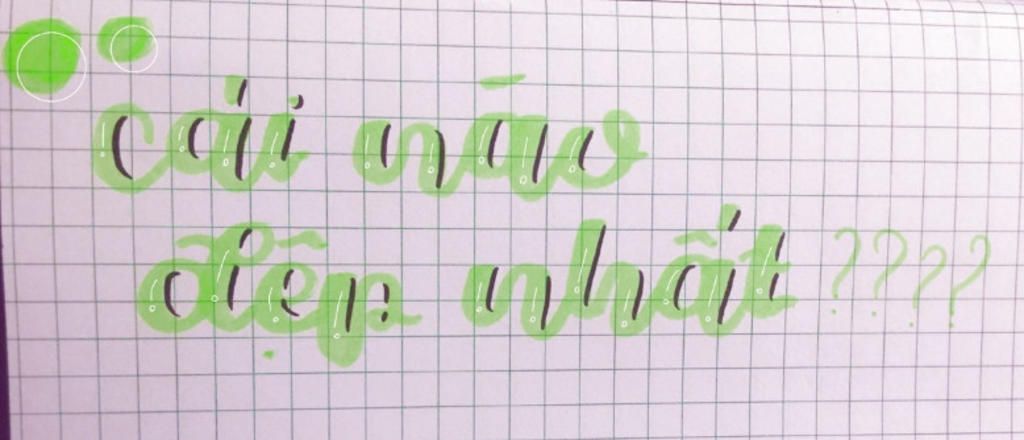 cái nào
đẹp nhất ????